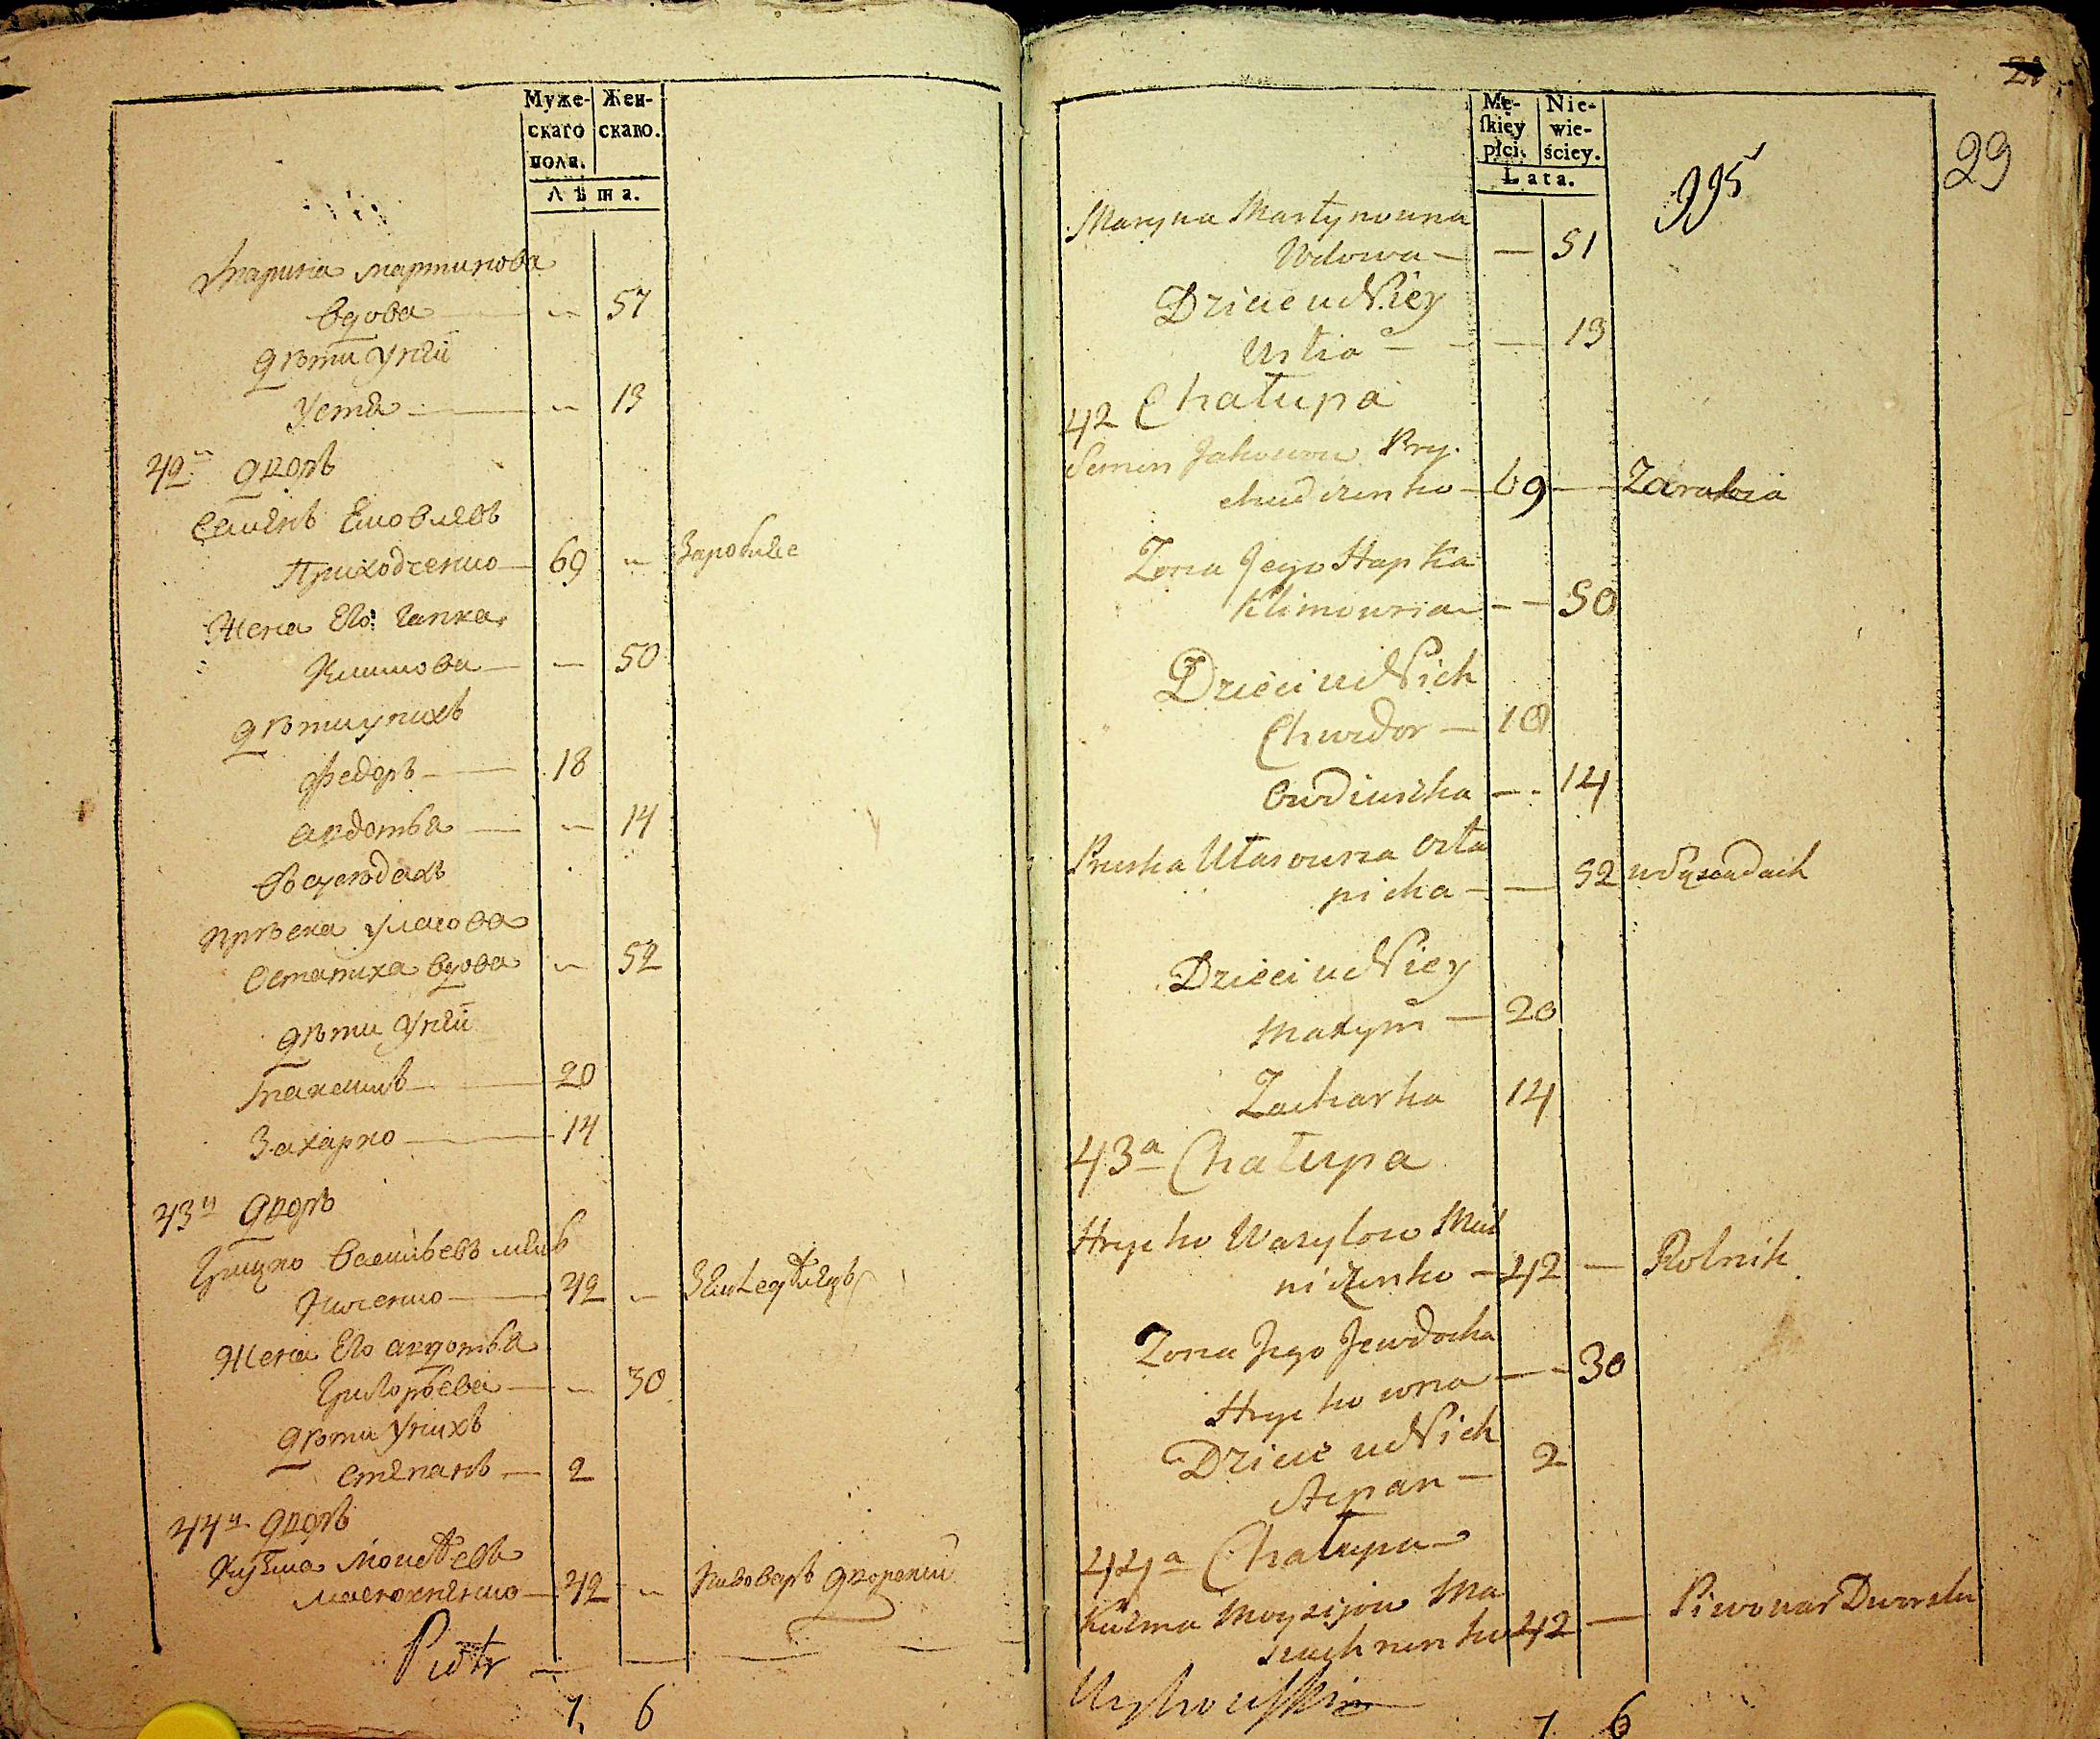 Муже-
скаго
пола.
Жен-
скаго.
Лѣта.
Марина мартинова
вдова — — 57
дѣти унеи
Устя — — 13
42й дворъ
Семенъ Яковлевъ
Приходченко — 69 —
Жена Его гапка
Климова — — 50
дѣти унихъ
Федоръ — 18
авдотья — — 14
Всусѣдахъ
Прѣска Уласова
Остапиха вдова — 52
дѣти унеи
Максимъ — 20
Захарко — 14
43й дворъ
Грицко Васильевъ
42 —
Жена Его авдотья
Григорьева — — 30
дѣти унихъ
степанъ — 2
44й дворъ
Кузма
42 — Пивоваръ дворскии
Piotr —
7. 6
21
29
995
Mę-
ſkiey
płci.
Nie-
wie-
ściey.
Lata.
Maryna Martynowna
Wdowa — — 51
Dziecie u Niey
Ustia — — 13
42 Chałupa
Semen Jakowow Pry-
chudczenko — 69 — Zarabia
Zona Jego Hapka
Klimowna — — 50
Dzieci u Nich
Chwedor — 18
Owdiuszka — — 14
Pruska Ułasowna Osta
picha — — 52 w Sąsiadach
Dzieci u Niey
Maxym — 20
Zacharko 14
43a Chałupa
Hrycko Wasylow Miel
niczenko — 42 — Rolnik
Zona Jego Jewdocha
Hryckowna — — 30
Dziecie u Nich
Stepan — 2
44a Chałupa
Kuzma Moysijow Ma
42 — Piwowar Dworski
7. 6